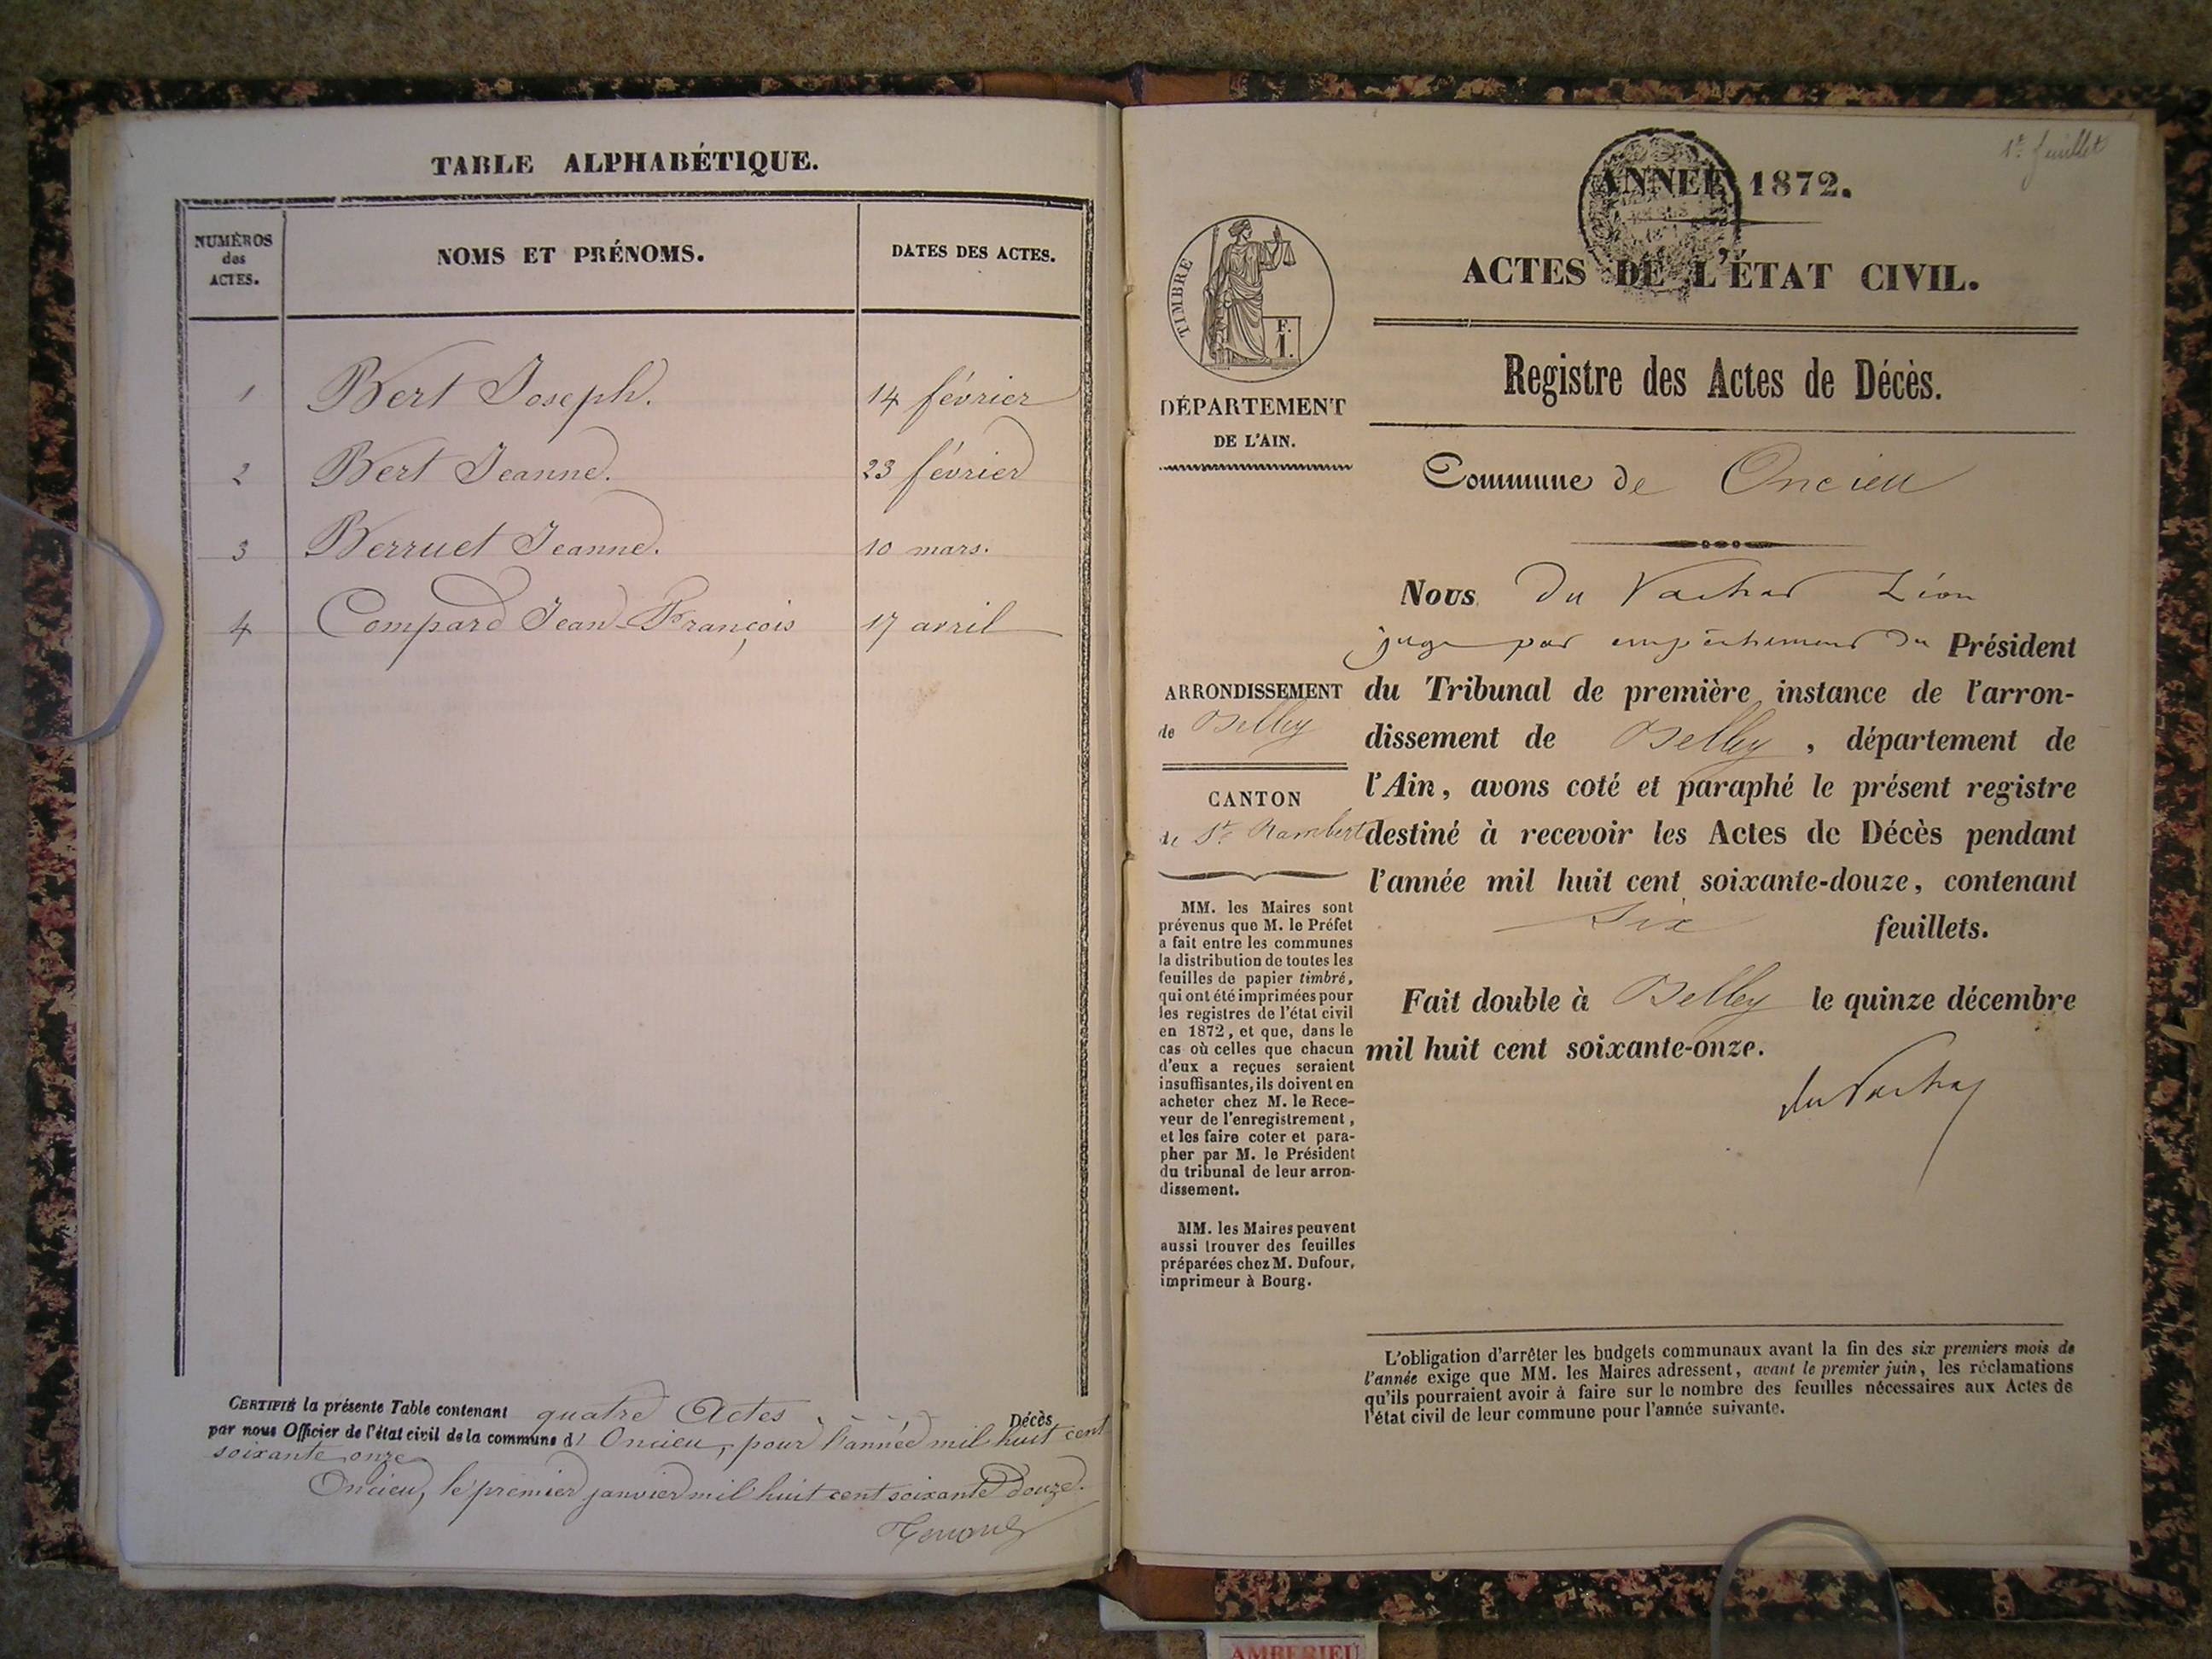 TABLE ALPHABÉTIQUE.
NUMÉROS
des
ACTES.
NOMS ET PRÉNOMS.
DATES DES ACTES.
1 Bert Joseph. 14 février
2 Bert Jeanne. 23 février
3 Berruet Jeanne. 10 mars.
4 Compard Jean-François 17 avril
CERTIFIÉ la présente Table contenant quatre Actes Décès
par nous Officier de l'état civil de la commune d' Oncieu, pour l'année mil huit cent
soixante onze
Oncieu, le premier janvier mil huit cent soixante douze.
1er feuillet
ANNÉE 1872.
ACTES DE L'ÉTAT CIVIL.
Registre des Actes de Décès.
Commune de Oncieu
TIMBRE
F.
1.
DÉPARTEMENT
DE L'AIN.
ARRONDISSEMENT
de Belley
CANTON
de St Rambert
MM. les Maires sont
prévenus que M. le Préfet
a fait entre les communes
la distribution de toutes les
feuilles de papier timbré,
qui ont été imprimées pour
les registres de l'état civil
en 1872, et que, dans le
cas où celles que chacun
d'eux a reçues seraient
insuffisantes, ils doivent en
acheter chez M. le Rece-
veur de l'enregistrement,
et les faire coter et para-
pher par M. le Président
du tribunal de leur arron-
dissement.
MM. les Maires peuvent
aussi trouver des feuilles
préparées chez M. Dufour,
imprimeur à Bourg.
Nous du Vachat Léon
juge par empêchement du Président
du Tribunal de première instance de l'arron-
dissement de Belley, département de
l'Ain, avons coté et paraphé le présent registre
destiné à recevoir les Actes de Décès pendant
l'année mil huit cent soixante-douze, contenant
six feuillets.
Fait double à Belley le quinze décembre
mil huit cent soixante-onze.
du Vachat
L'obligation d'arrêter les budgets communaux avant la fin des six premiers mois de
l'année exige que MM. les Maires adressent, avant le premier juin, les réclamations
qu'ils pourraient avoir à faire sur le nombre des feuilles nécessaires aux Actes de
l'état civil de leur commune pour l'année suivante.
AMBERIEU